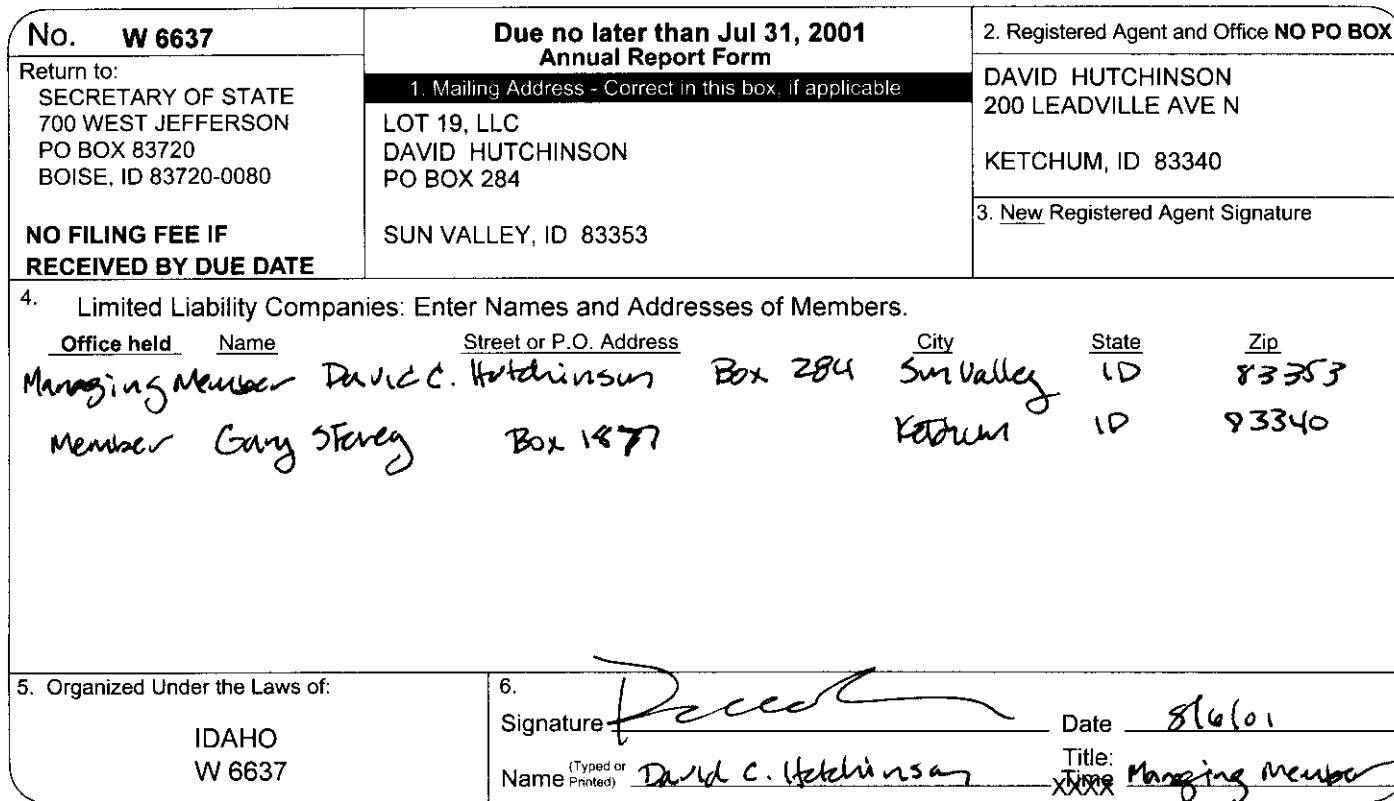 No. W 6637
Return to:
SECRETARY OF STATE
700 WEST JEFFERSON
PO BOX 83720
BOISE, ID 83720-0080
NO FILING FEE IF
RECEIVED BY DUE DATE
Due no later than Jul 31, 2001
Annual Report Form
1. Mailing Address - Correct in this box, if applicable
LOT 19, LLC
DAVID HUTCHINSON
PO BOX 284
SUN VALLEY, ID 83353
2. Registered Agent and Office NO PO BOX
DAVID HUTCHINSON
200 LEADVILLE AVE N
KETCHUM, ID 83340
3. New Registered Agent Signature
4. Limited Liability Companies: Enter Names and Addresses of Members.
Office held Name Street or P.O. Address City State Zip
Managing Member David C. Hutchinson Box 284 Sun Valley ID 83353
Member Gary Box 1877 Ketchum ID 83340
5. Organized Under the Laws of:
IDAHO
W 6637
6.
Signature Date 8/6/01
Name (Typed or Printed) David C. Hutchinson Title: Managing Member
XXXX